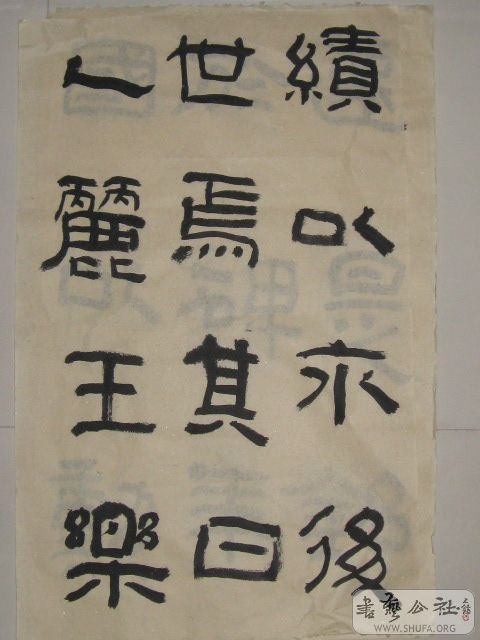 績以示後
世焉其曰
人麗王樂
書藝公社
WWW.SHUFA.ORG